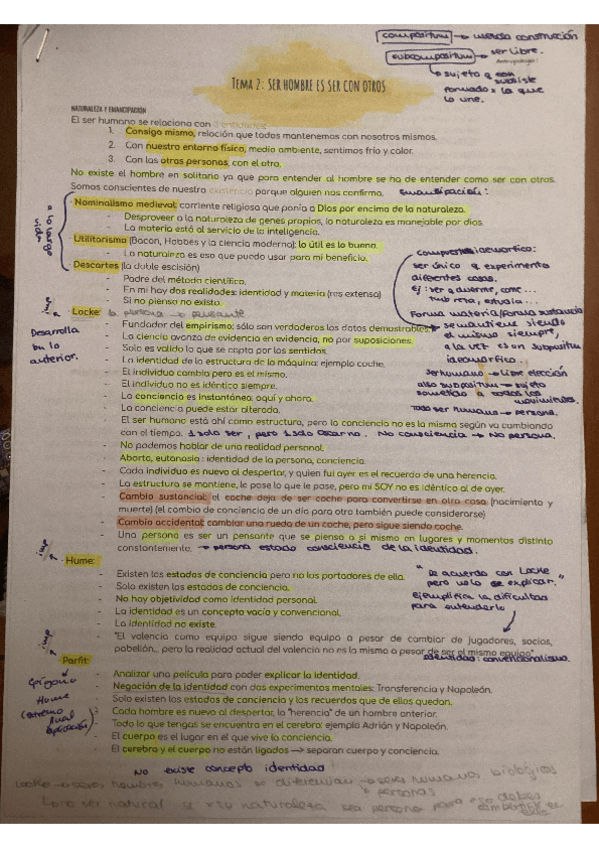 compositum → mezcla construcción
subcompositum → ser libre.
sujeto q
subsiste
formado x lo que
lo une.
TEMA 2: SER HOMBRE ES SER CON OTROS
NATURALEZA Y EMANCIPACIÓN
El ser humano se relaciona con
1. Consigo mismo, relación que todos mantenemos con nosotros mismos.
2. Con nuestro entorno físico, medio ambiente, sentimos frío y calor.
3. Con las otras personas, con el otro.
No existe el hombre en solitario ya que para entender al hombre se ha de entender como ser con otros.
Somos conscientes de nuestra existencia porque alguien nos confirma. Emancipación:
a lo largo
vida
Nominalismo medieval: corriente religiosa que ponía a Dios por encima de la naturaleza.
- Desproveer a la naturaleza de genes propios, lo naturaleza es manejable por dios.
- La materia está al servicio de la inteligencia.
Utilitarismo (Bacon, Hobbes y la ciencia moderna): lo útil es lo bueno.
- La naturaleza es eso que puedo usar para mi beneficio.
Descartes (la doble escisión)
- Padre del método científico.
- En mi hay dos realidades: identidad y materia (res extensa)
- Si no pienso no existo.
ser único q experimenta
diferentes cosas.
Ej: ver q duerme, come...
estudia...
Forma materia/forma sustancia
se mantiene siendo
el mismo siempre,
a la vez es un subpositum
ser humano → libre elección
subpositum → sujeto
sometido a todos los
movimientos.
Todo ser humano → persona.
imp
Locke: la persona → pensante
Desarrolla
lo
anterior.
- Fundador del empirismo: sólo son verdaderos los datos demostrables.
- La ciencia avanza de evidencia en evidencia, no por suposiciones.
- Solo es valido lo que se capta por los sentidos.
- La identidad de la estructura de la máquina: ejemplo coche.
- El individuo cambia pero es el mismo.
- El individuo no es idéntico siempre.
- La conciencia es instantánea: aquí y ahora.
- La conciencia puede estar alterada.
- El ser humano está ahí como estructura, pero la conciencia no es la misma según va cambiando
con el tiempo. 1 solo ser, pero 1 solo Oscar no. No consciencia → No persona.
- No podemos hablar de una realidad personal.
- Aborto, eutanasia : identidad de la persona, conciencia.
- Cada individuo es nuevo al despertar, y quien fui ayer es el recuerdo de una herencia.
- La estructura se mantiene, le pase lo que le pase, pero mi SOY no es idéntico al de ayer.
- Cambio sustancial: el coche deja de ser coche para convertirse en otra cosa (nacimiento y
muerte) (el cambio de conciencia de un día para otro también puede considerarse)
- Cambio accidental: cambiar una rueda de un coche, pero sigue siendo coche.
- Una persona es ser un pensante que se piensa a si mismo en lugares y momentos distinto
constantemente. → persona estado consciencia de la identidad.
imp
Hume:
- Existen los estados de conciencia pero no los portadores de ella.
- Solo existen los estados de conciencia.
- No hay objetividad como identidad personal.
- La identidad es un concepto vacío y convencional.
- La identidad no existe.
- "El valencia como equipo sigue siendo equipo a pesar de cambiar de jugadores, socios,
pabellón... pero la realidad actual del valencia no es la misma a pesar de ser el mismo equipo"
"De acuerdo con Locke
pero no lo se explicar."
Ejemplifica la dificultad
para entenderlo
identidad: convencionalismo.
imp
Parfit:
- Analizar una película para poder explicar la identidad.
- Negación de la identidad con dos experimentos mentales: Transferencia y Napoleón.
- Solo existen los estados de conciencia y los recuerdos que de ellos quedan.
- Cada hombre es nuevo al despertar, la "herencia" de un hombre anterior.
- Todo lo que tengas se encuentra en el cerebro: ejemplo Adrián y Napoleón.
- El cuerpo es el lugar en el que vive la conciencia.
- El cerebro y el cuerpo no están ligados → separan cuerpo y conciencia.
No existe concepto identidad!
Locke → seres humanos se diferencian → seres humanos biológicos
personas